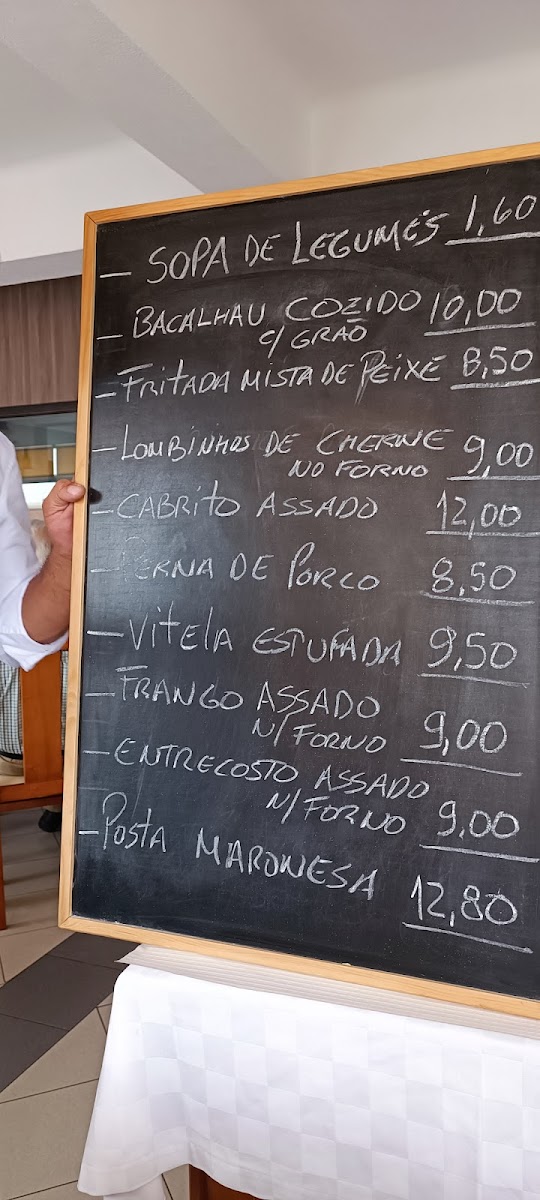 — SOPA DE LEGUMES 1,60
— BACALHAU COZIDO 10,00
C/ GRÃO
— FRITADA MISTA DE PEIXE 8,50
— LOMBINHOS DE CHERNE 9,00
NO FORNO
— CABRITO ASSADO 12,00
— PERNA DE PORCO 8,50
— VITELA ESTUFADA 9,50
— FRANGO ASSADO
N/ FORNO 9,00
— ENTRECOSTO ASSADO
N/ FORNO 9,00
— POSTA MARONESA 12,80